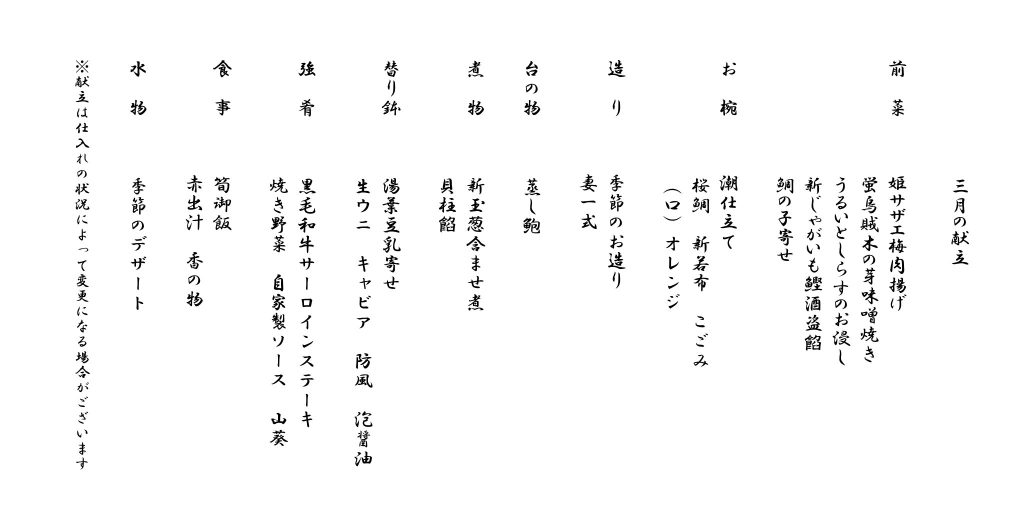 三月の献立
前菜
姫サザエ梅肉揚げ
蛍烏賊木の芽味噌焼き
うるいとしらすのお浸し
新じゃがいも鰹酒盗餡
鯛の子寄せ
お椀
潮仕立て
桜鯛 新若布 こごみ
(口)オレンジ
造り
季節のお造り
妻一式
台の物
蒸し鮑
煮物
新玉葱含ませ煮
貝柱餡
替り鉢
湯葉豆乳寄せ
生ウニ キャビア 防風 泡醤油
強肴
黒毛和牛サーロインステーキ
焼き野菜 自家製ソース 山葵
食事
筍御飯
赤出汁 香の物
水物
季節のデザート
※献立は仕入れの状況によって変更になる場合がございます